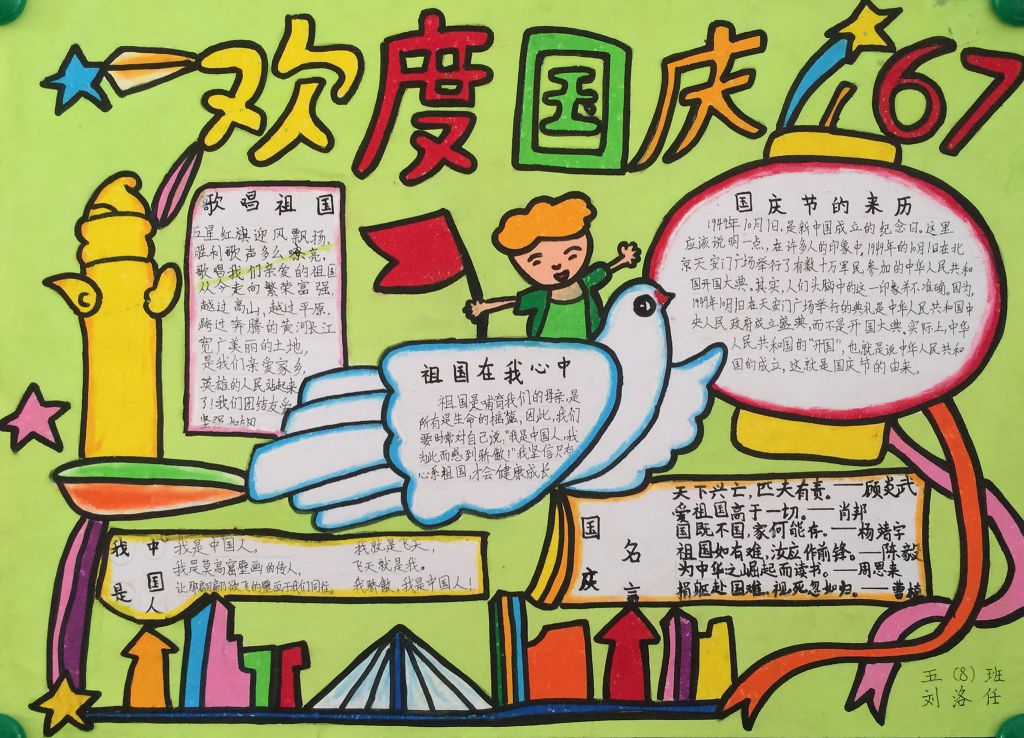 欢度国庆 67
歌唱祖国
五星红旗迎风飘扬,
胜利歌声多么嘹亮,
歌唱我们亲爱的祖国
从今走向繁荣富强
越过高山,越过平原
跨过奔腾的黄河长江
宽广美丽的土地,
是我们亲爱家乡,
英雄的人民站起来
了!我们团结友爱
国庆节的来历
1949年10月1日,是新中国成立的纪念日。这里
应该说明一点,在许多人的印象中,1949年的10月1日在北
京天安门广场举行了有数十万军民参加的中华人民共和
国开国大典。其实,人们头脑中的这一印象并不准确。因为,
1949年10月1日在天安门广场举行的典礼是中华人民共和国中
央人民政府成立盛典,而不是开国大典。实际上,中华
人民共和国的“开国”,也就是说中华人民共和
国的成立,这就是国庆节的由来。
祖国在我心中
祖国是哺育我们的母亲,是
所有是生命的摇篮,因此,我们
要时常对自己说:“我是中国人,我
为此而感到骄傲!”我坚信只有
心系祖国,才会健康成长
国庆名言
天下兴亡,匹夫有责。——顾炎武
爱祖国高于一切。——肖邦
国既不国,家何能存。——杨靖宇
祖国如有难,汝应作前锋。——陈毅
为中华之崛起而读书。——周恩来
捐躯赴国难,视死忽如归。——曹植
我是中国人
我是中国人,
我是莫高窟壁画的传人,
让那翩翩欲飞的壁画于我们同往。
我就是飞天,
飞天就是我。
我骄傲,我是中国人!
五(8)班
刘洛任